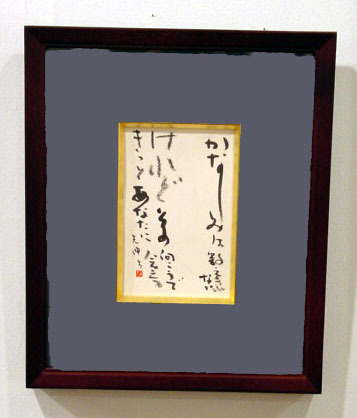 かなしみは数え切れ
ない
けれど その向こうで
きっと あなたに 会える